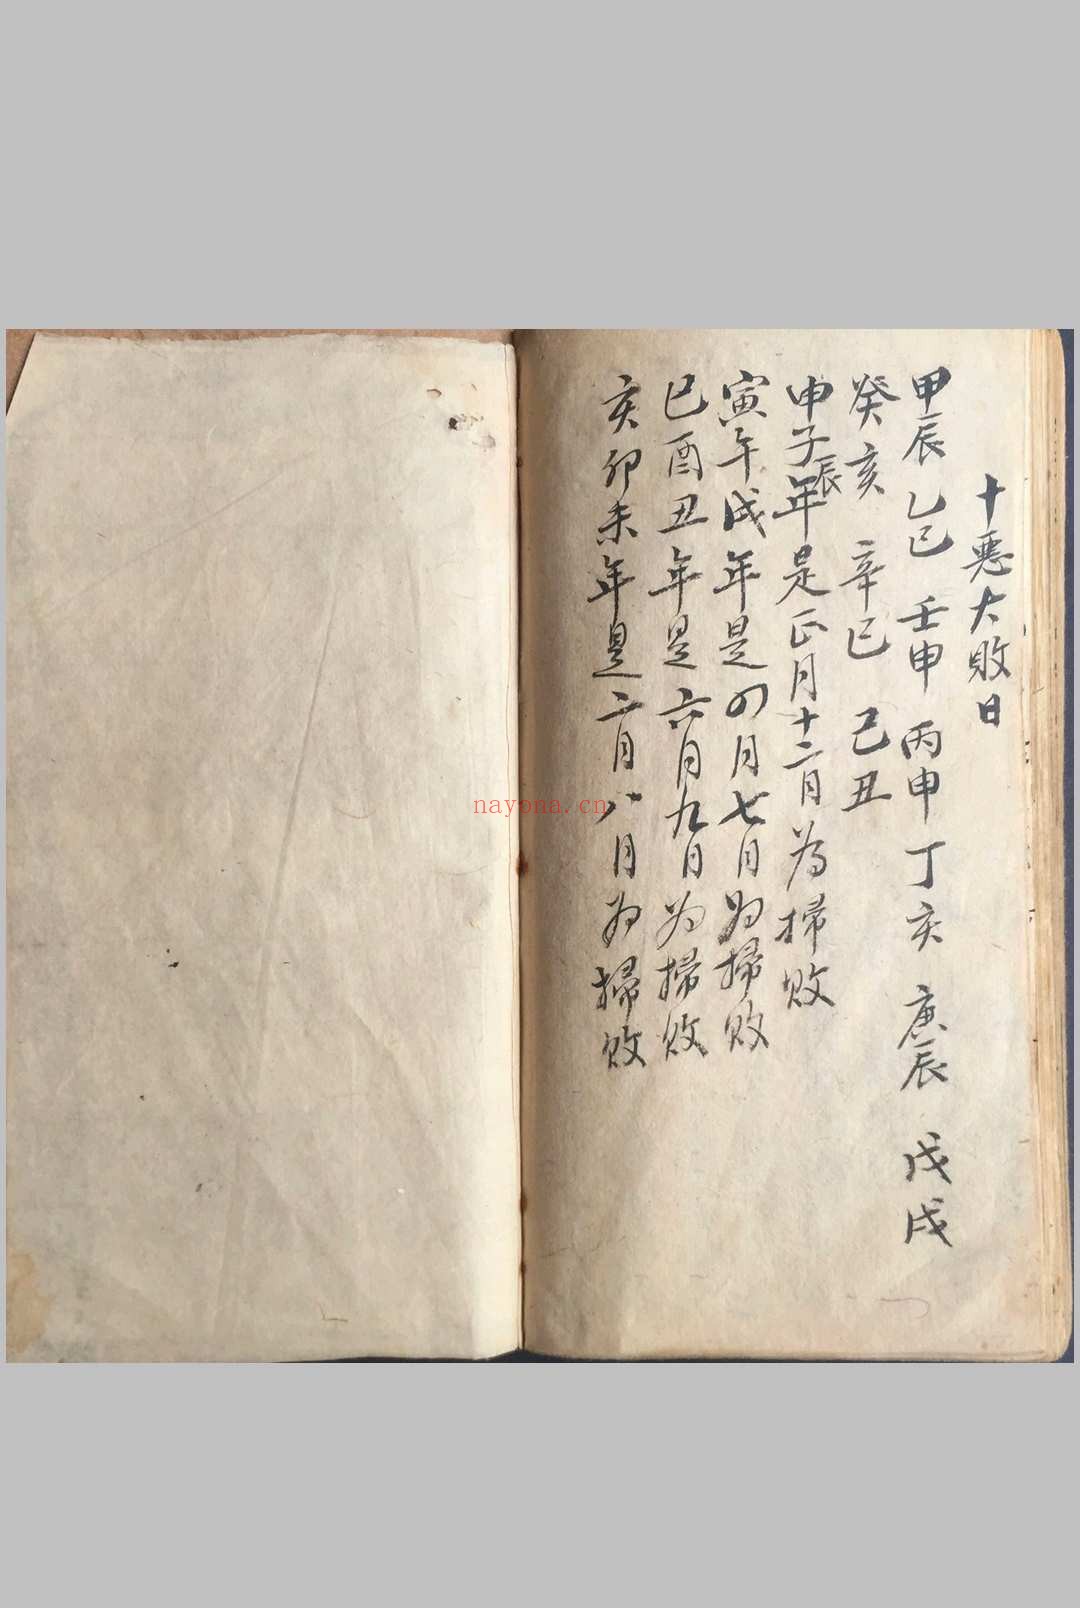 十惡大敗日
甲辰 乙巳 壬申 丙申 丁亥 庚辰 戊戌
癸亥 辛巳 己丑
申子辰年是正月十二月為掃敗
寅午戌年是四月七月为掃敗
巳酉丑年是六月九月为掃敗
亥卯未年是二月八月为掃敗
nayona.cn